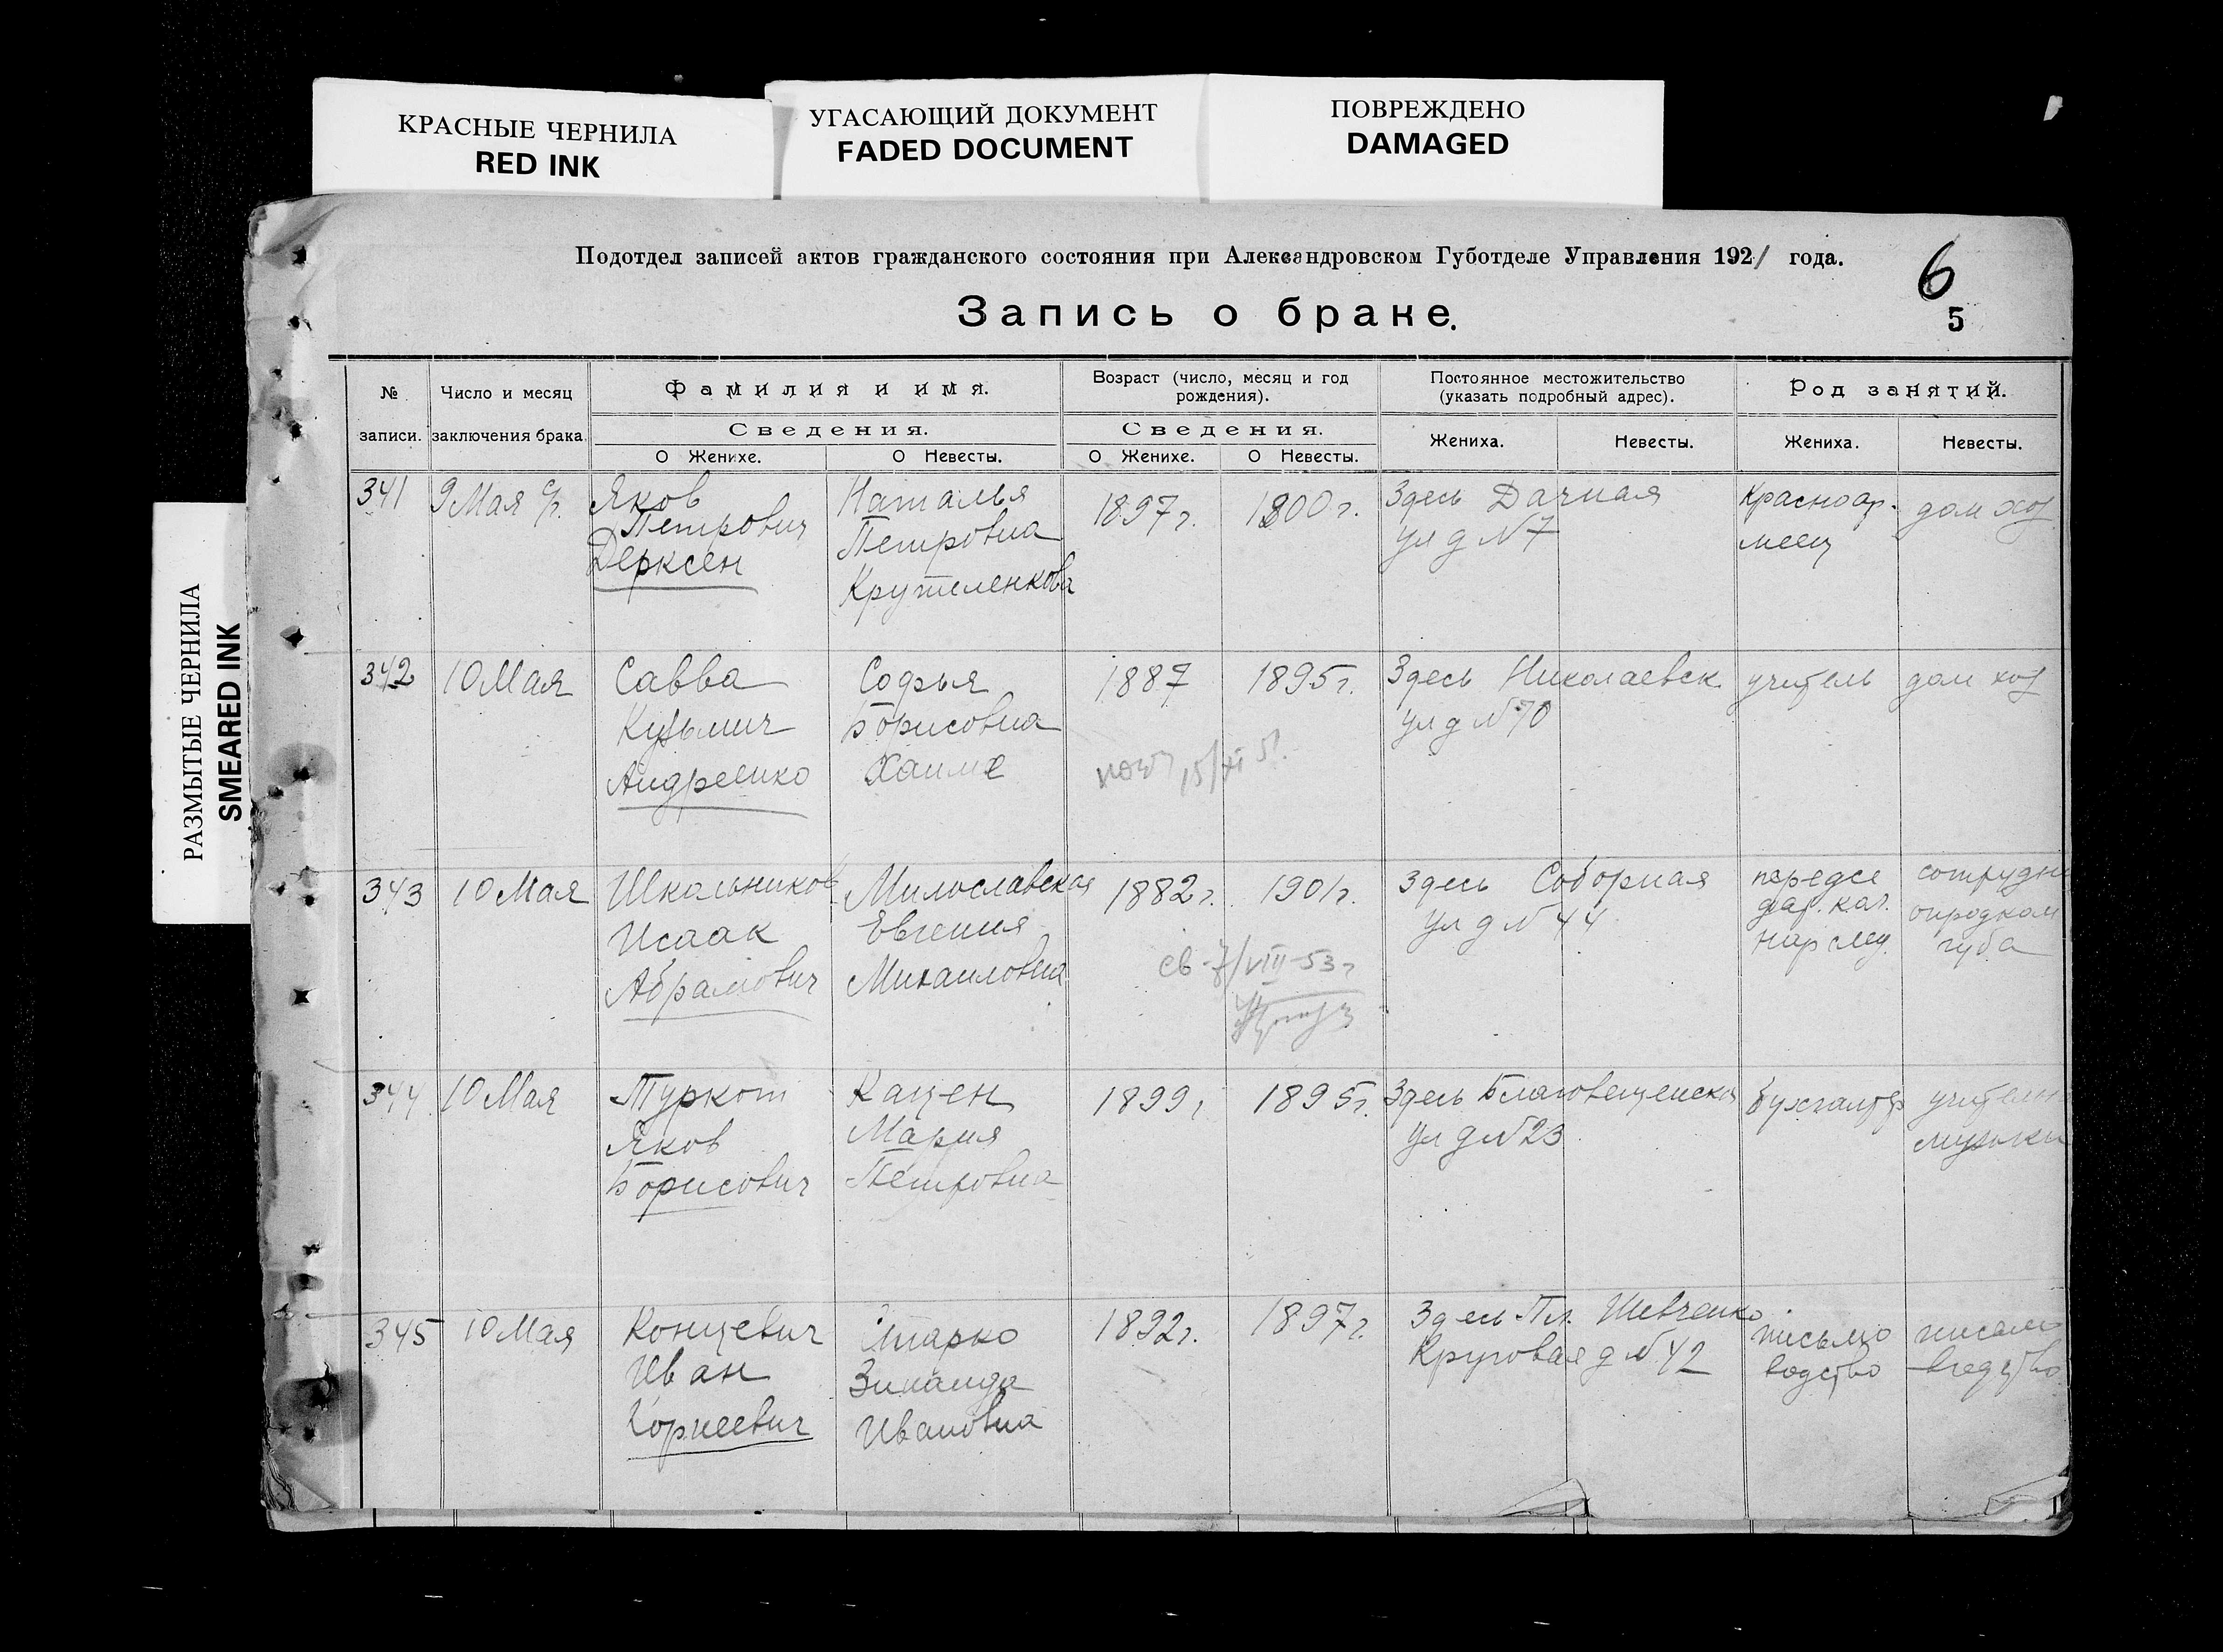 КРАСНЫЕ ЧЕРНИЛА
RED INK
УГАСАЮЩИЙ ДОКУМЕНТ
FADED DOCUMENT
ПОВРЕЖДЕНО
DAMAGED
РАЗМЫТЫЕ ЧЕРНИЛА
SMEARED INK
Подотдел записей актов гражданского состояния при Александровском Губотделе Управления 1921 года.
6
5
Запись о браке.
№ записи.
Число и месяц заключения брака.
Фамилия и имя.
Сведения.
О Женихе.
О Невесты.
Возраст (число, месяц и год рождения).
Сведения.
О Женихе.
О Невесты.
Постоянное местожительство (указать подробный адрес).
Жениха.
Невесты.
Род занятий.
Жениха.
Невесты.
341
9 Мая
Яков
Петрович
Дерксен
Наталья
Петровна
Крутеленкова
1897 г.
1900 г.
Здесь Дачная
ул д №7
Красноар-
меец
дом хоз
342
10 Мая
Савва
Кузьмич
Андреенко
Софья
Борисовна
Хаимс
1887
1895 г.
Здесь Николаевск.
ул д №70
учитель
дом хоз
15/XI 51.
343
10 Мая
Школьников
Исаак
Абрамович
Милославская
Евгения
Михаиловна
1882 г.
1901 г.
Здесь Соборная
ул д № 44
нар след.
сотрудн
опродком
губа
св-7/VIII-53 г
344
10 Мая
Туркот
Яков
Борисович
Кацен
Мария
Петровна
1899 г
1895 г.
Здесь Благовещенска
ул д №23
бухгалтер
учитель
музыки
345
10 Мая
Концевич
Иван
Корнеевич
Зинаида
Ивановна
1892 г.
1897 г.
Здесь Пл. Шевченко
Круговая д № 42
письмо
водство
письмо
водство